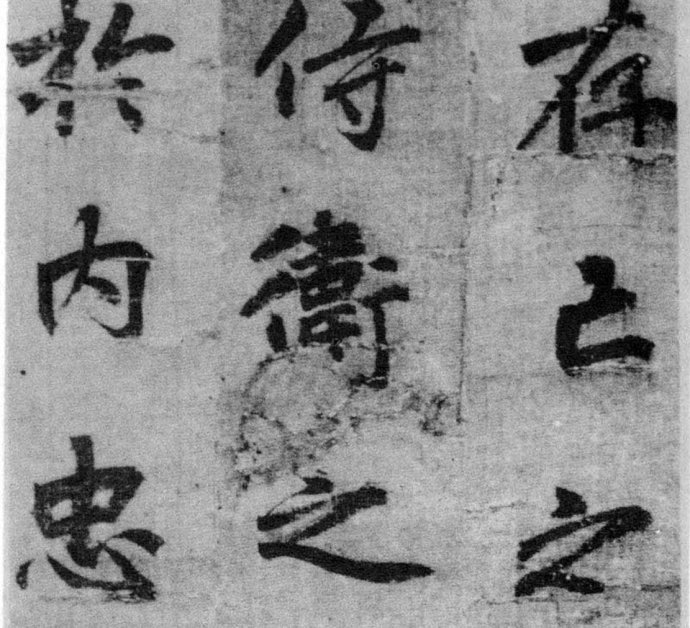 存亡之
侍衛之
於内忠